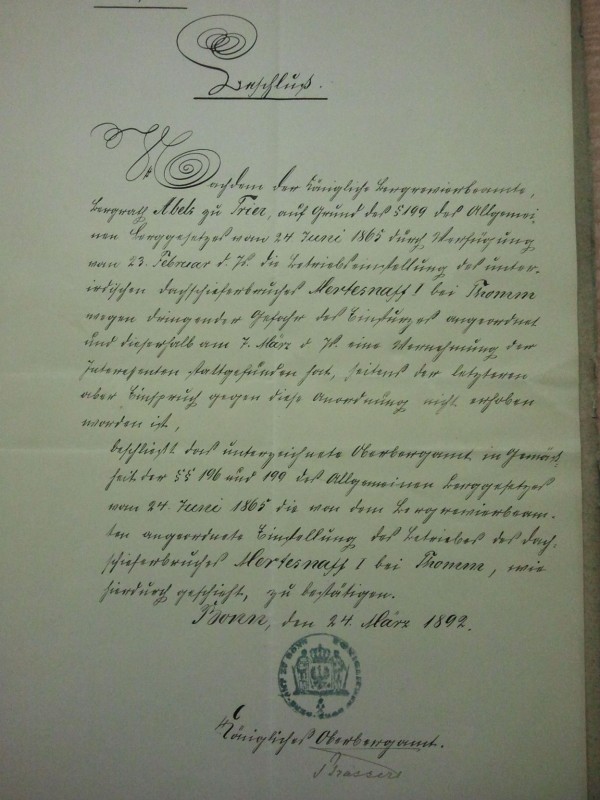 Beschluß.
Nachdem der Königliche Bergrevierbeamte,
Bergrath Abels zu Trier, auf Grund des § 199 des Allgemei-
nen Berggesetzes vom 24 Juni 1865 durch Verfügung
vom 23. Februar d. Js. die Betriebseinstellung des unter-
irdischen Dachschieferbruches Mertesnaff I bei Thomm
wegen dringender Gefahr des Einsturzes angeordnet
und dieserhalb am 7. März d. Js. eine Vernehmung der
Interessenten stattgefunden hat, seitens der letzteren
aber Einspruch gegen diese Anordnung nicht erhoben
worden ist,
beschließt das unterzeichnete Oberbergamt in Gemäß-
heit der §§ 196 und 199 des Allgemeinen Berggesetzes
vom 24. Juni 1865 die von dem Bergrevierbeam-
ten angeordnete Einstellung des Betriebes des Dach-
schieferbruches Mertesnaff I bei Thomm, wie
hierdurch geschieht, zu bestätigen.
Bonn, den 24. März 1892.
Königliches Oberbergamt.
Brassert